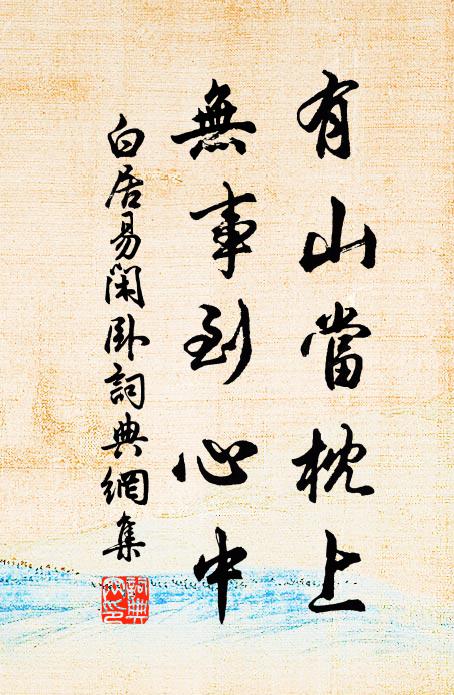 有山當枕上
無事到心中
白居易閑臥詞典網集